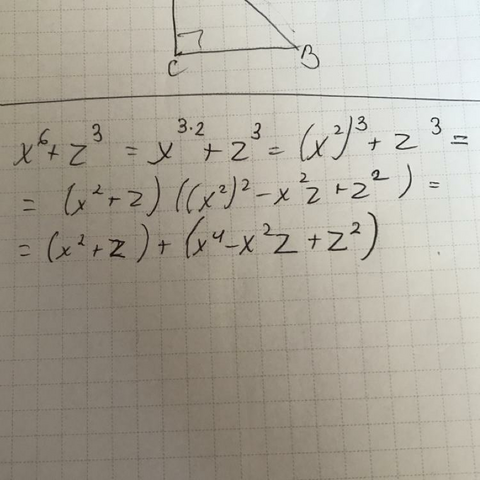 C B
x⁶ + z³ = x³·² + z³ = (x²)³ + z³ =
= (x² + z) ((x²)² - x²z + z²) =
= (x² + z) + (x⁴ - x²z + z²)